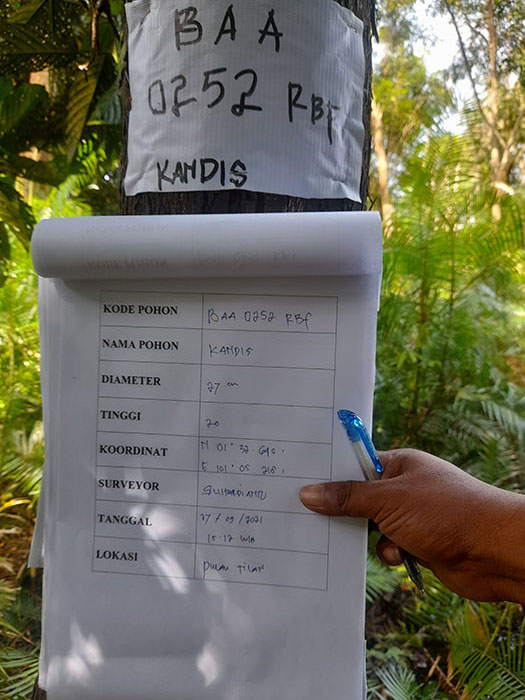 BAA
0252 RBf
KANDIS
KODE POHON BAA 0252 RBf
NAMA POHON KANDIS
DIAMETER 27 cm
TINGGI 20
KOORDINAT N 01° 32 690'
E 101° 05 218'
SURVEYOR
TANGGAL 27/09/2021
15.12 WIB
LOKASI PULAU TILAN